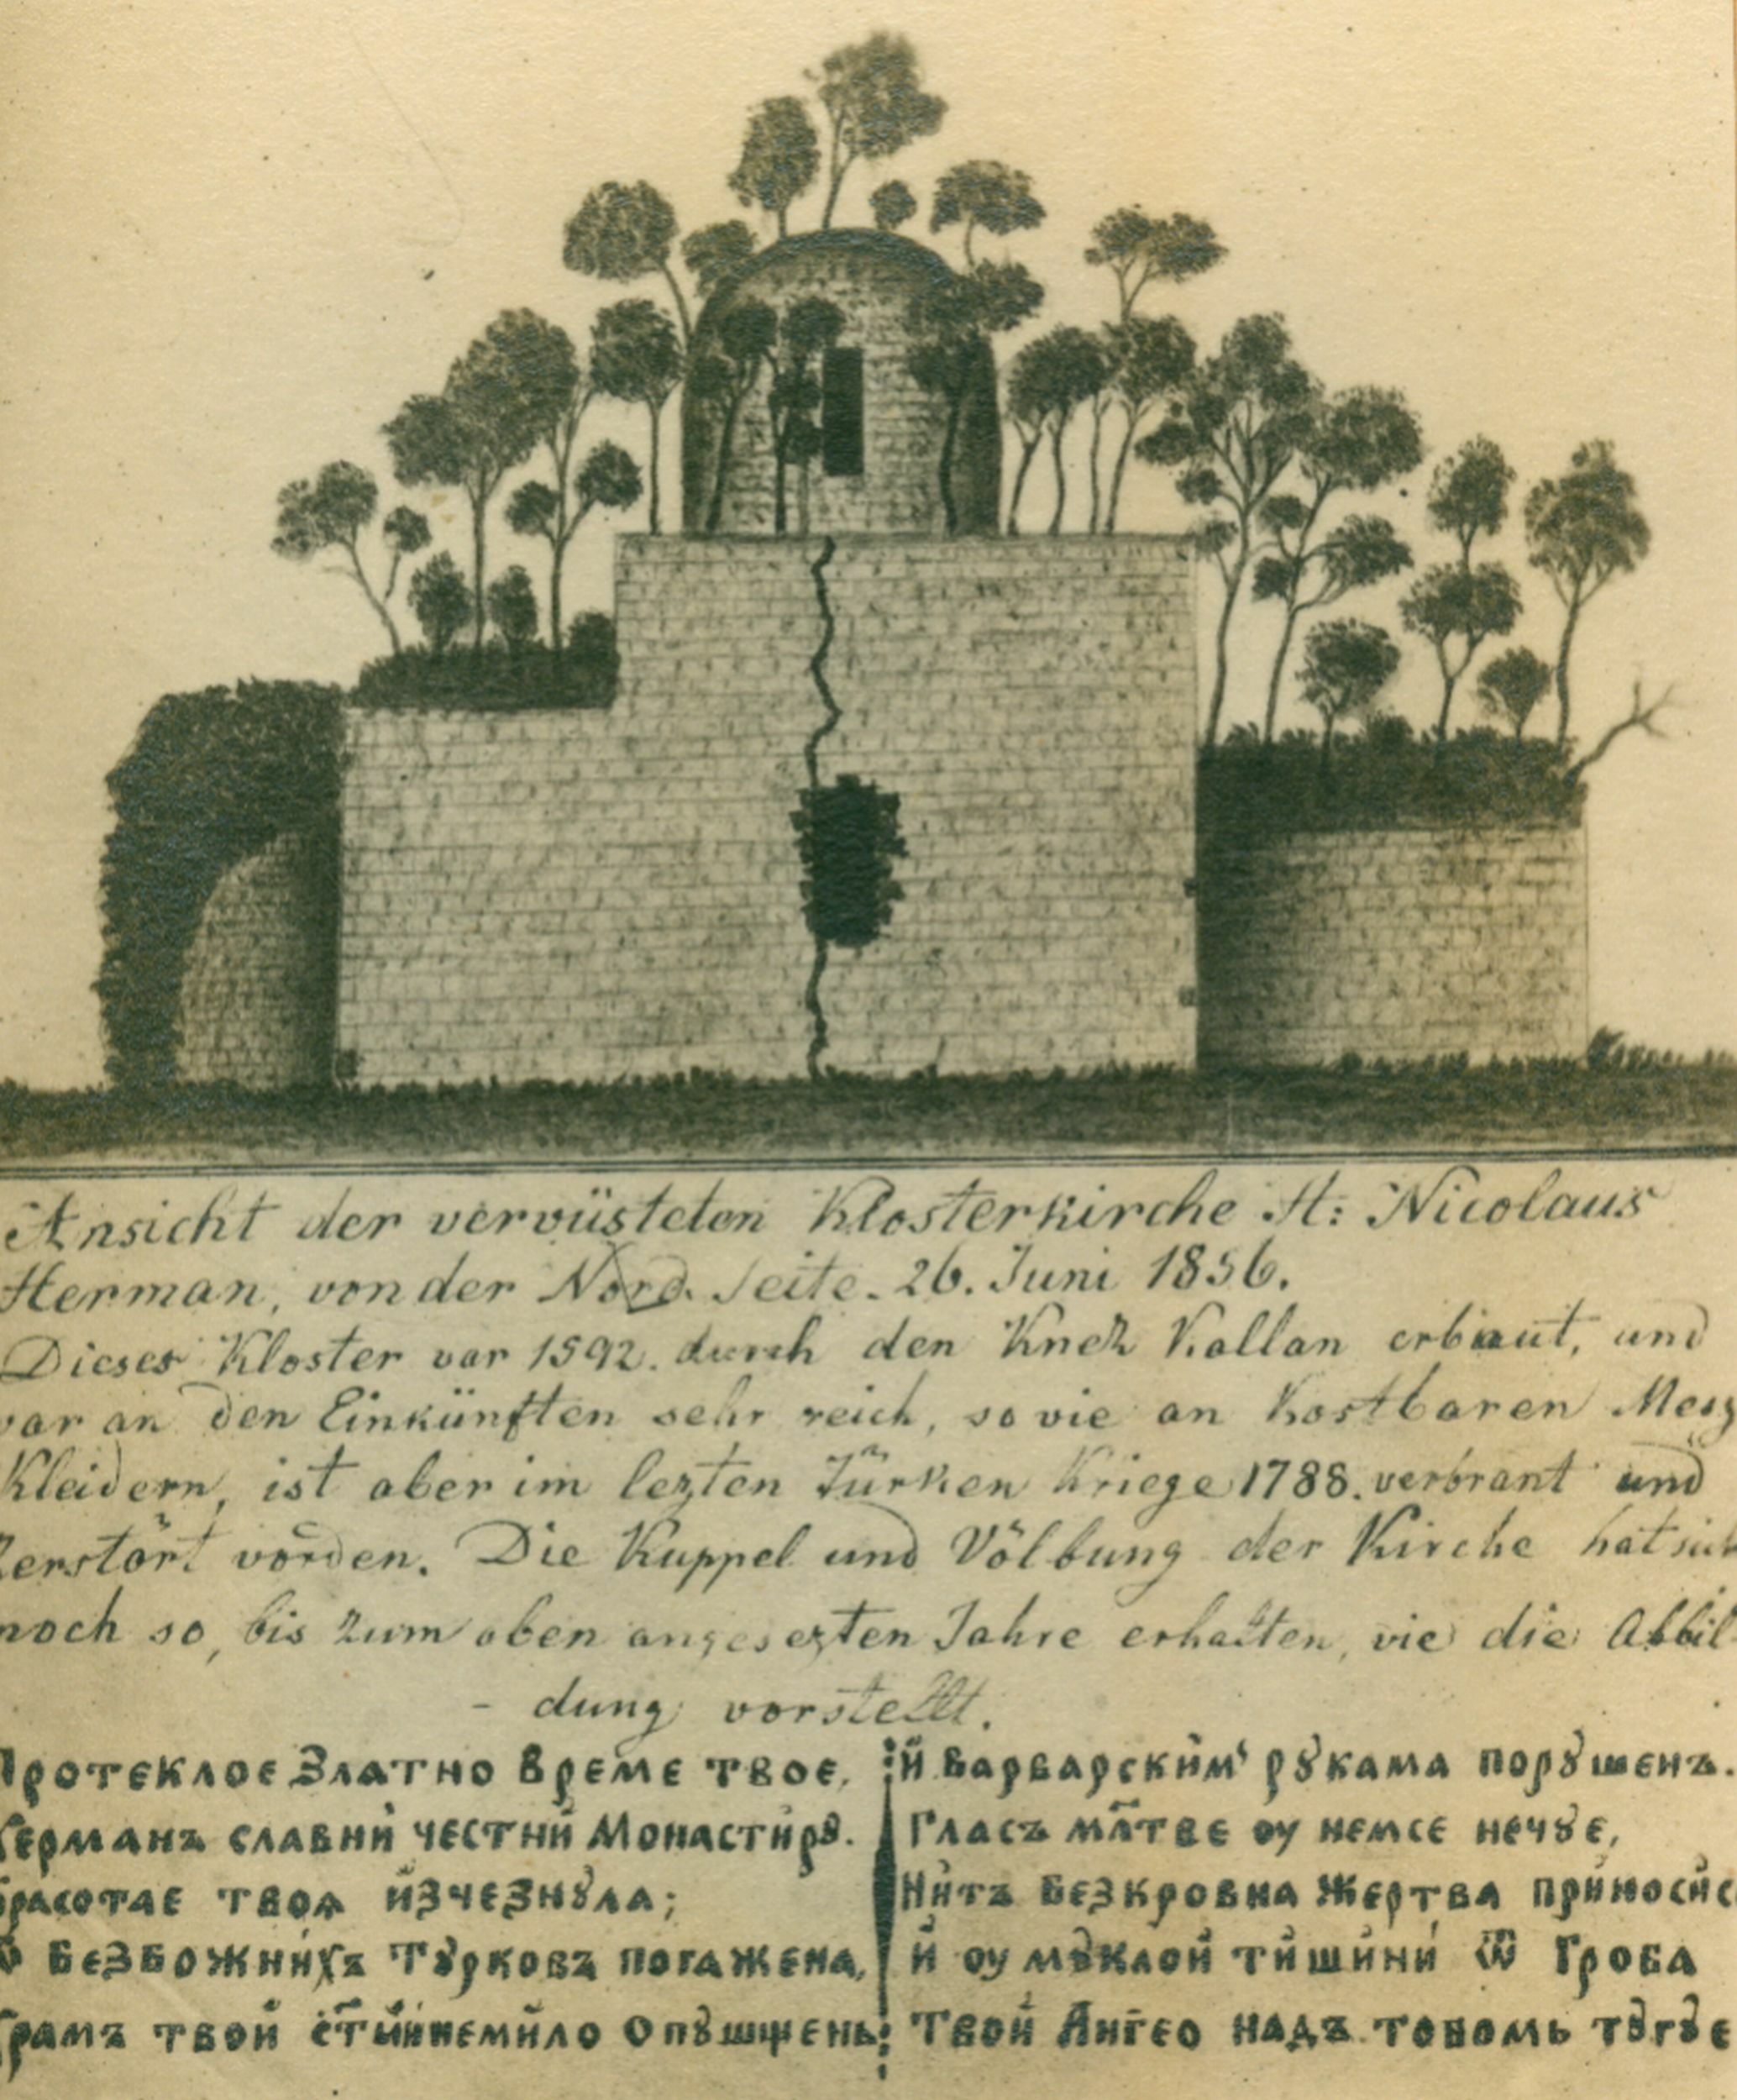 Ansicht der vervüsteten Klosterkirche St: Nicolaus
Herman, von der Nord. Seite. 26. Juni 1856.
Dieses Kloster var 1592. durch den Knez Kallan erbaut, und
var an den Einkünften sehr reich, so vie an Kostbaren Mesz
Kleidern, ist aber im lezten Türken Kriege 1788. verbrant und
Zerstört vorden. Die Kuppel und Völbung der Kirche hat sich
noch so, bis zum oben angesezten Jahre erhalten, vie die Abbil-
- dung vorstellt.
Протекло є Златно Време твоє,
Германъ славни честни Монастирꙋ.
Красота є твоѧ изчезнꙋла;
Ѿ Безбожнихъ Тꙋрковъ погажена,
Храмъ твой ст҃ый немило Опꙋшшень:
И Варварским' рꙋкама порꙋшенъ.
Гласъ мл҃тве оу немсе нечꙋе,
Нитъ Безкровна Жертва приносисе
И оу мꙋклой тишини Ѿ Гроба
Твой Ангео надъ товомь тꙋгꙋе